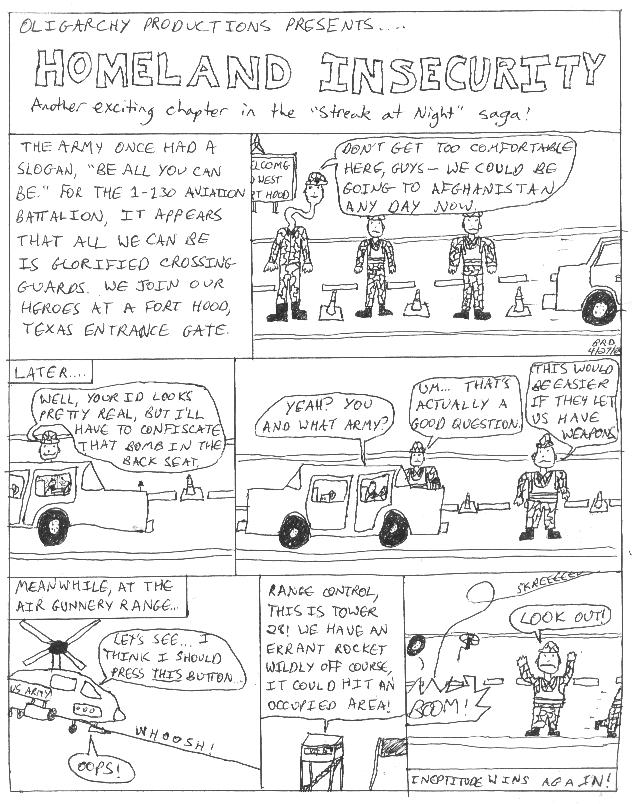 OLIGARCHY PRODUCTIONS PRESENTS....
HOMELAND INSECURITY
Another exciting chapter in the "Streak at Night" saga!
THE ARMY ONCE HAD A
SLOGAN, "BE ALL YOU CAN
BE." FOR THE 1-130 AVIATION
BATTALION, IT APPEARS
THAT ALL WE CAN BE
IS GLORIFIED CROSSING
GUARDS. WE JOIN OUR
HEROES AT A FORT HOOD,
TEXAS ENTRANCE GATE.
ELCOME
O WEST
RT HOOD
DON'T GET TOO COMFORTABLE
HERE, GUYS— WE COULD BE
GOING TO AFGHANISTAN
ANY DAY NOW.
BRD
LATER....
WELL, YOUR ID LOOKS
PRETTY REAL, BUT I'LL
HAVE TO CONFISCATE
THAT BOMB IN THE
BACK SEAT.
YEAH? YOU
AND WHAT ARMY?
UM... THAT'S
ACTUALLY A
GOOD QUESTION.
THIS WOULD
BE EASIER
IF THEY LET
US HAVE
WEAPONS
MEANWHILE, AT THE
AIR GUNNERY RANGE...
LET'S SEE... I
THINK I SHOULD
PRESS THIS BUTTON...
US ARMY
WHOOSH!
OOPS!
RANGE CONTROL,
THIS IS TOWER
28! WE HAVE AN
ERRANT ROCKET
WILDLY OFF COURSE,
IT COULD HIT AN
OCCUPIED AREA!
SKREEEEEE
LOOK OUT!
BOOM!
INEPTITUDE WINS AGAIN!